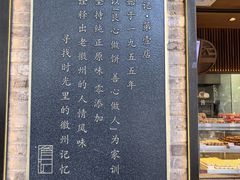 记·第壹居
始于一九五五年
以“良心做饼 善心做人”为家训
坚持纯正原味 零添加
诠释出老徽州的人情风味
寻找时光里的徽州记忆